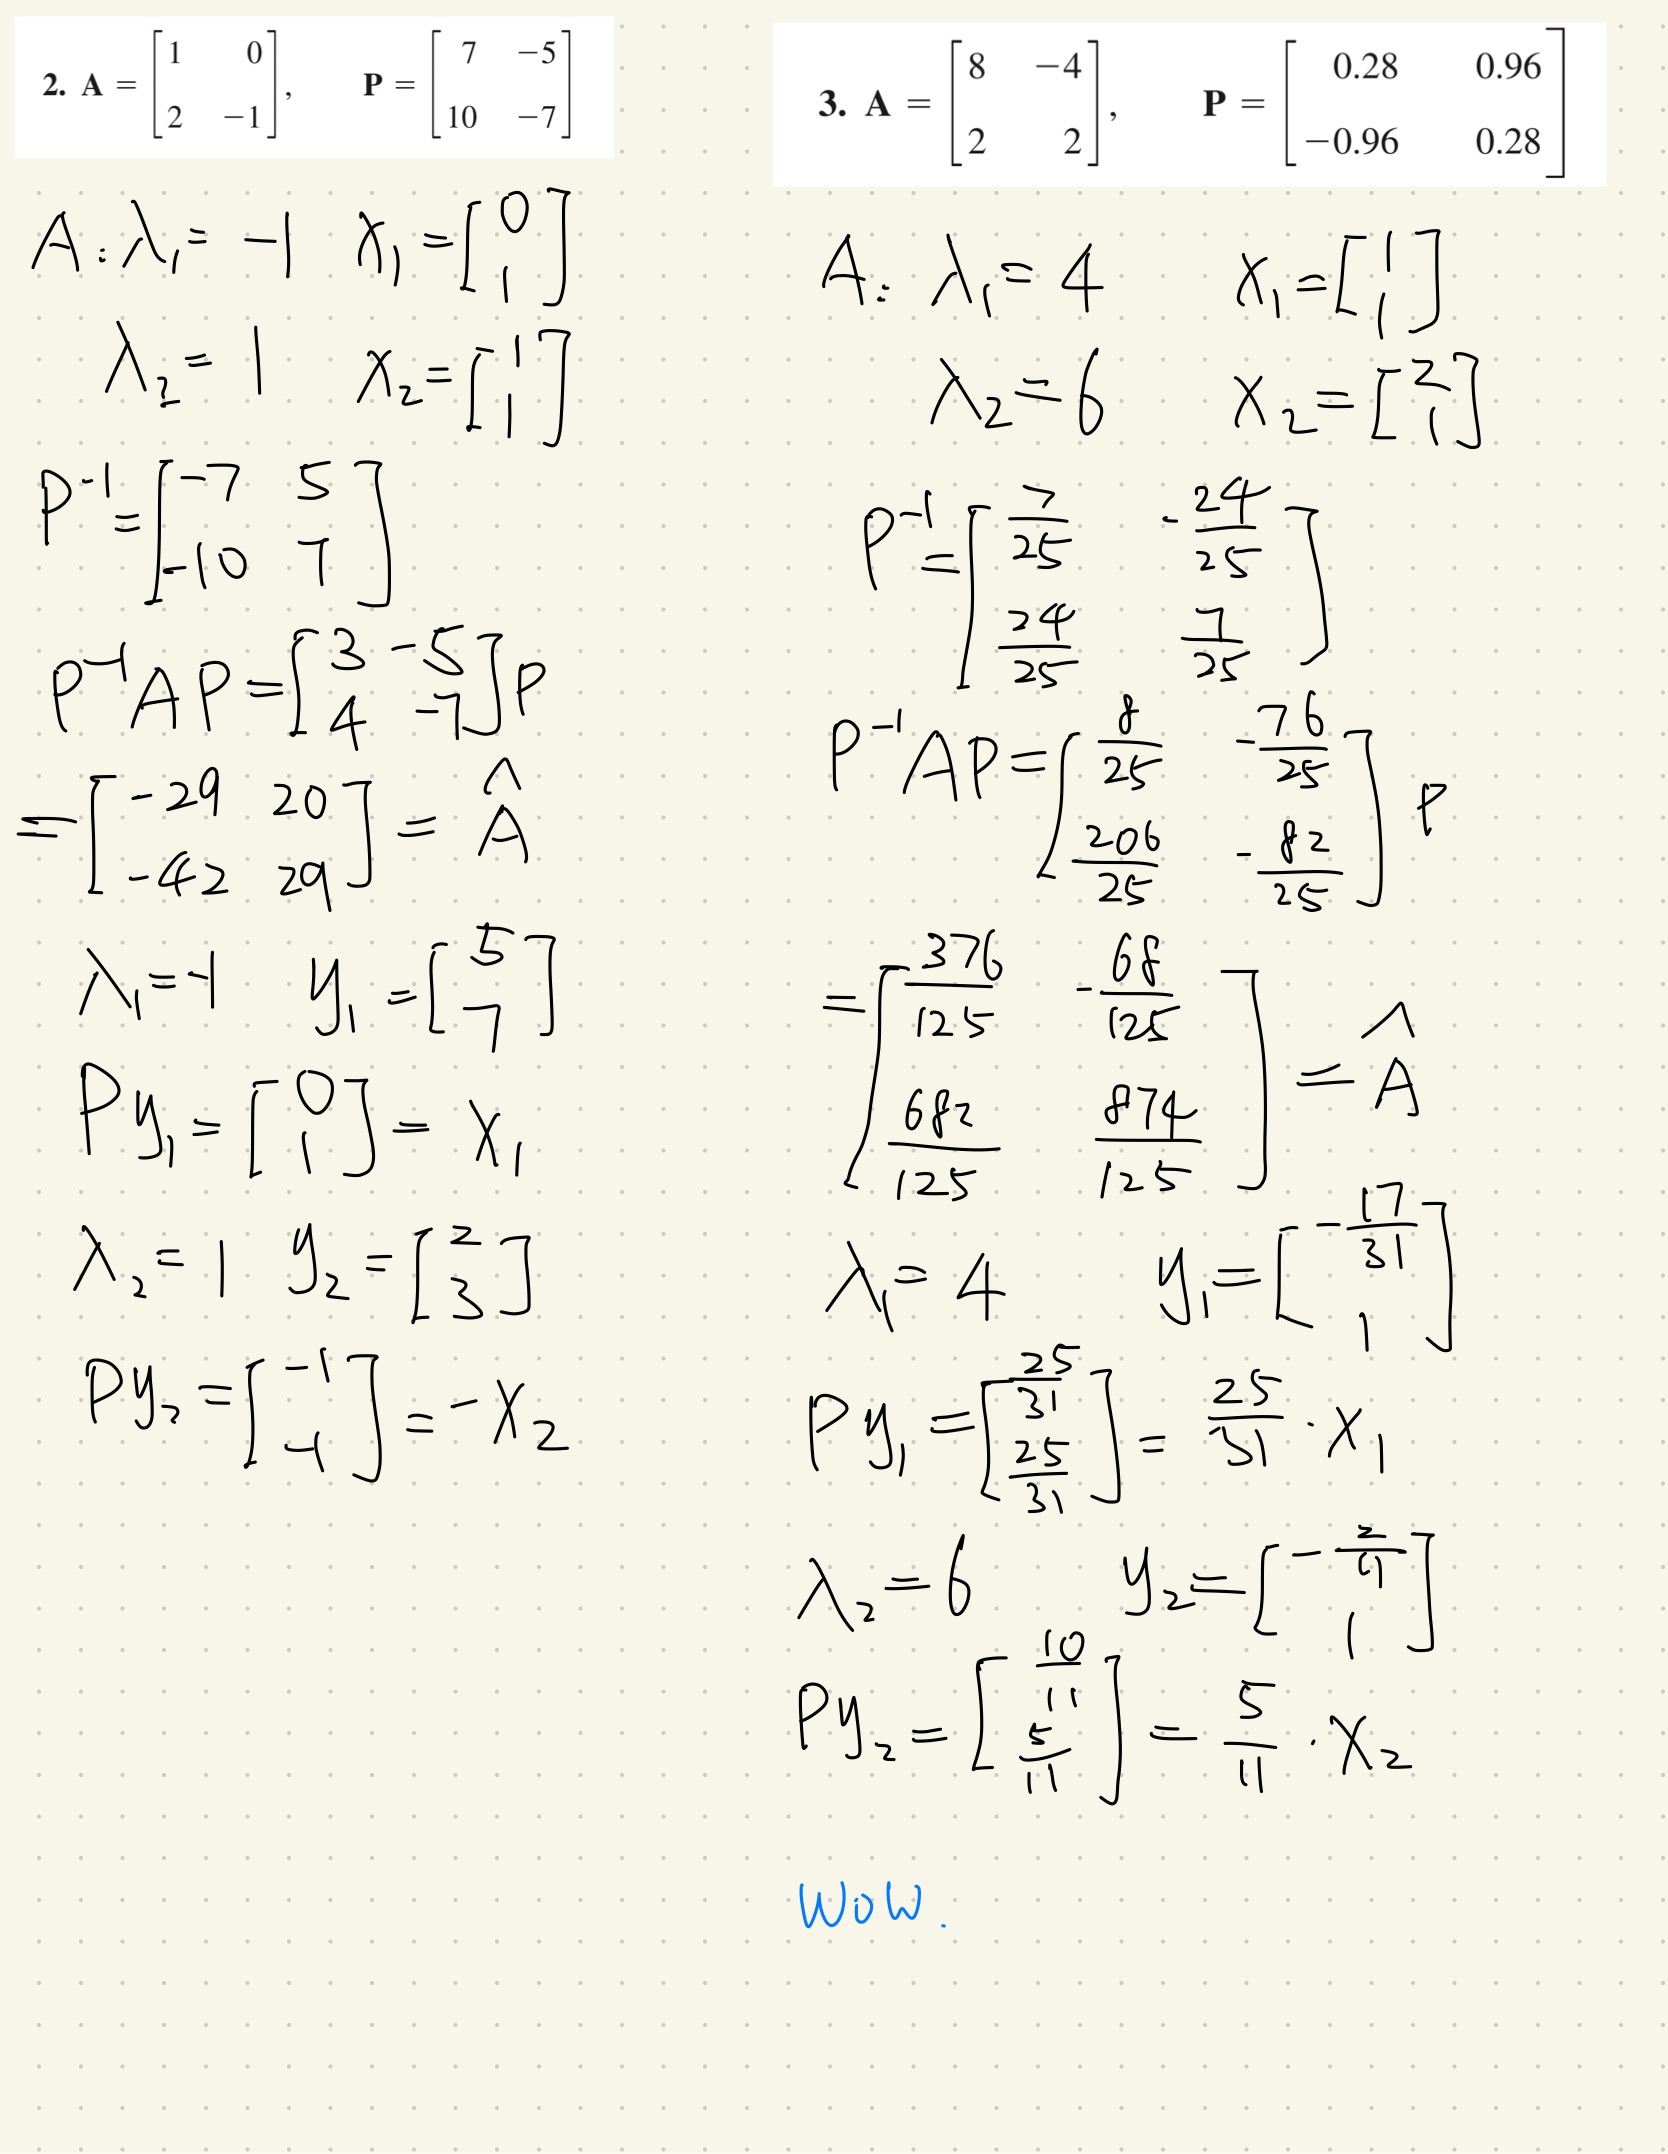 2. A = [1 0; 2 −1], P = [7 −5; 10 −7]
A: λ₁ = −1 x₁ = [0; 1]
λ₂ = 1 x₂ = [1; 1]
P⁻¹ = [−7 5; −10 7]
P⁻¹AP = [3 −5; 4 −7]P
= [−29 20; −42 29] = Â
λ₁ = −1 y₁ = [5; 7]
Py₁ = [0; 1] = x₁
λ₂ = 1 y₂ = [2; 3]
Py₂ = [−1; −1] = −x₂
3. A = [8 −4; 2 2], P = [0.28 0.96; −0.96 0.28]
A: λ₁ = 4 x₁ = [1; 1]
λ₂ = 6 x₂ = [2; 1]
P⁻¹ = [7/25 −24/25; 24/25 7/25]
P⁻¹AP = [8/25 −76/25; 206/25 −82/25] P
= [376/125 −68/125; 682/125 874/125] = Â
λ₁ = 4 y₁ = [−17/31; 1]
Py₁ = [25/31; 25/31] = 25/31 · x₁
λ₂ = 6 y₂ = [−2/11; 1]
Py₂ = [10/11; 5/11] = 5/11 · x₂
WoW.